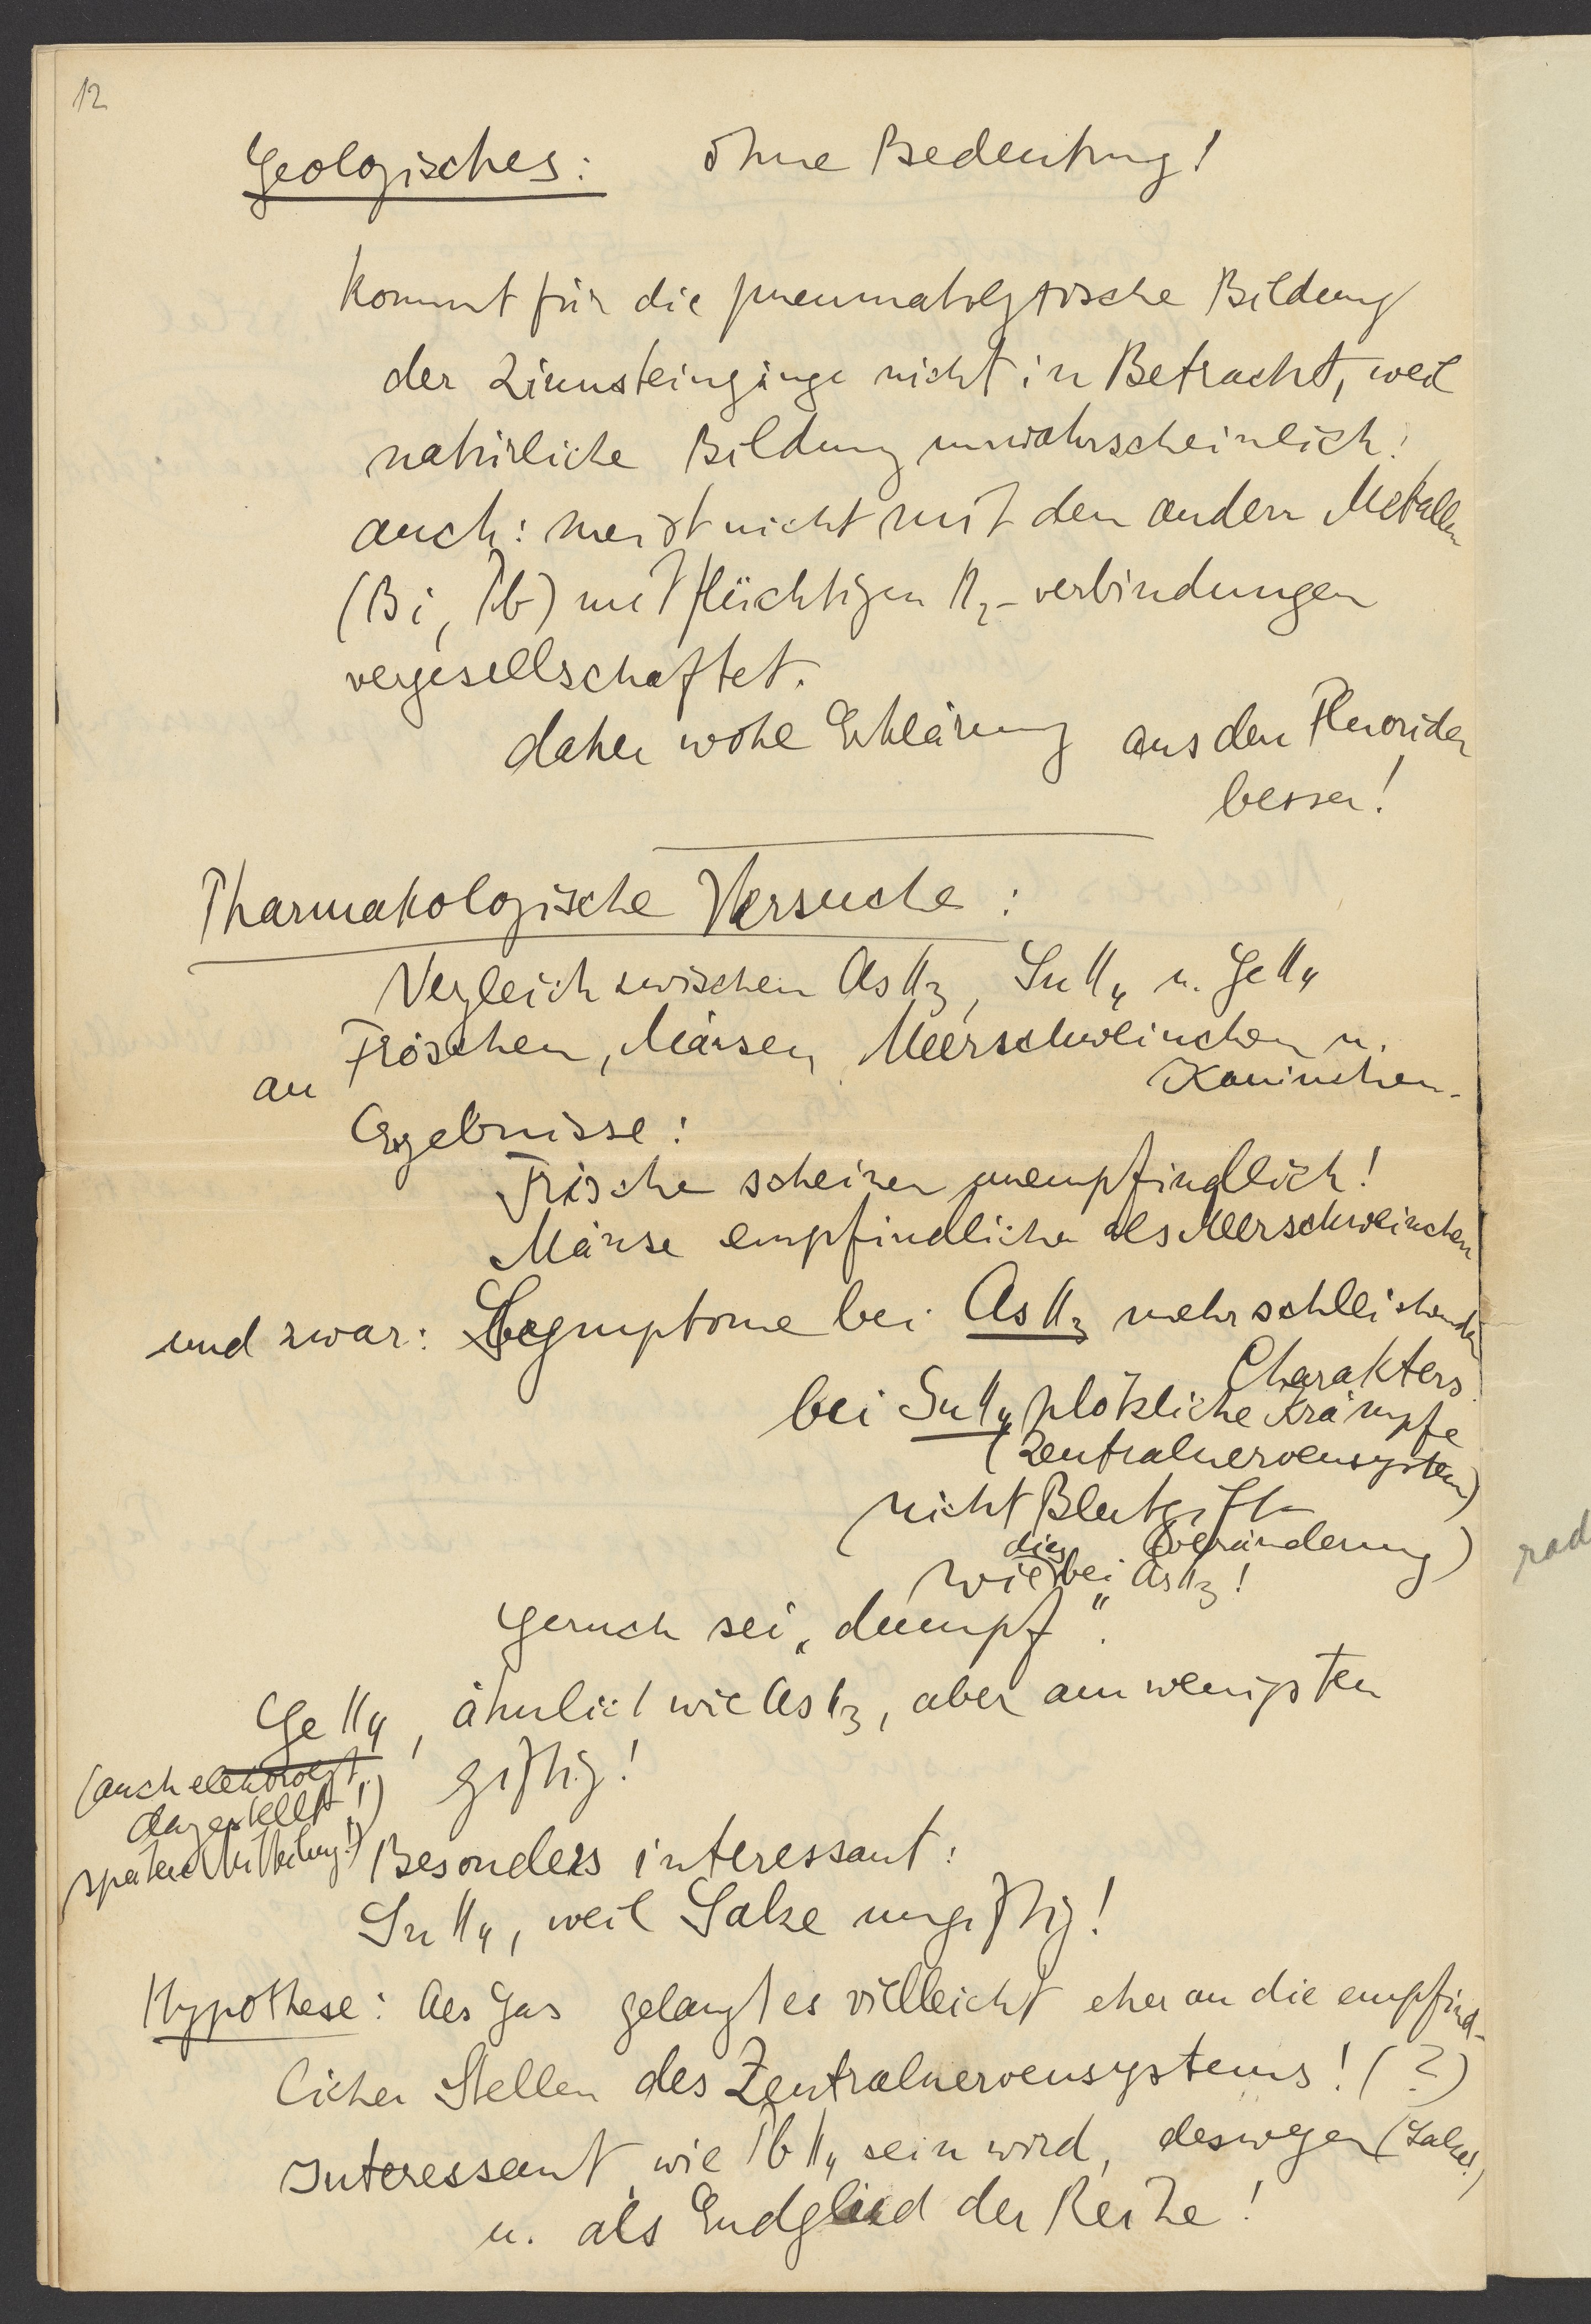 12
Geologisches: ohne Bedeutung!
kommt für die pneumatolytische Bildung
der Zinnsteingänge nicht in Betracht, weil
natürliche Bildung unwahrscheinlich!
auch: meist nicht mit den andern Metallen
(Bi, Pb) mit flüchtigen H2-verbindungen
vergesellschaftet.
daher wohl Erklärung aus den Fluoriden
besser!
Pharmakologische Versuche:
Vergleich zwischen AsH3, SnH4 u. GeH4
an Fröschen, Mäusen, Meerschweinchen u.
Kaninchen.
Ergebnisse:
Frösche scheinen unempfindlich!
Mäuse empfindlicher als Meerschweinchen
und zwar: Symptome bei AsH3 mehr schleichenden
Charakters
bei SnH4 plötzliche Krämpfe
(Zentralnervensystem)
(nicht Blutgift
veränderung)
wie dies bei AsH3!
Geruch sei „dumpf".
GeH4, ähnlich wie AsH3, aber am wenigsten
giftig!
(auch elektrolyt.
dargestellt!)
spätere Mitteilung!)
Besonders interessant:
SnH4, weil Salze ungiftig!
Hypothese: Als Gas gelangt es vielleicht eher an die empfind-
lichen Stellen des Zentralnervensystems! (?)
Interessant, wie PbH4 sein wird, deswegen (Salze!)
u. als Endglied der Reihe!
rad